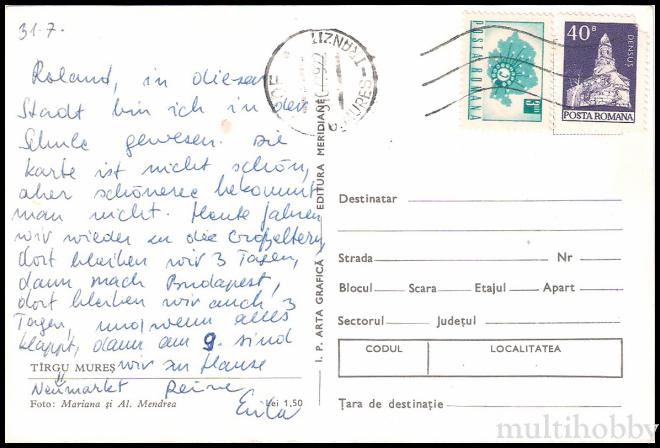 31.7.
Roland, in dieser
Stadt bin ich in der
Schule gewesen. Die
Karte ist nicht schön,
aber schönere bekommt
man nicht. Heute fahren
wir wieder zu die Großeltern,
dort bleiben wir 3 Tagen,
dann nach Budapest,
dort bleiben wir auch 3
Tagen, und wenn alles
klappt, dann am 9. sind
wir zu Hause
TÎRGU MUREȘ
Neumarkt Deine
Foto: Mariana și Al. Mendrea
Lei 1,50
I. P. ARTA GRAFICĂ EDITURA MERIDIANE
TRANZIT
MUREȘ
POSTA ROMANA
40B
DENSUS
POSTA ROMANA
Destinatar
Strada Nr
Blocul Scara Etajul Apart
Sectorul Județul
CODUL LOCALITATEA
Țara de destinație
multihobby